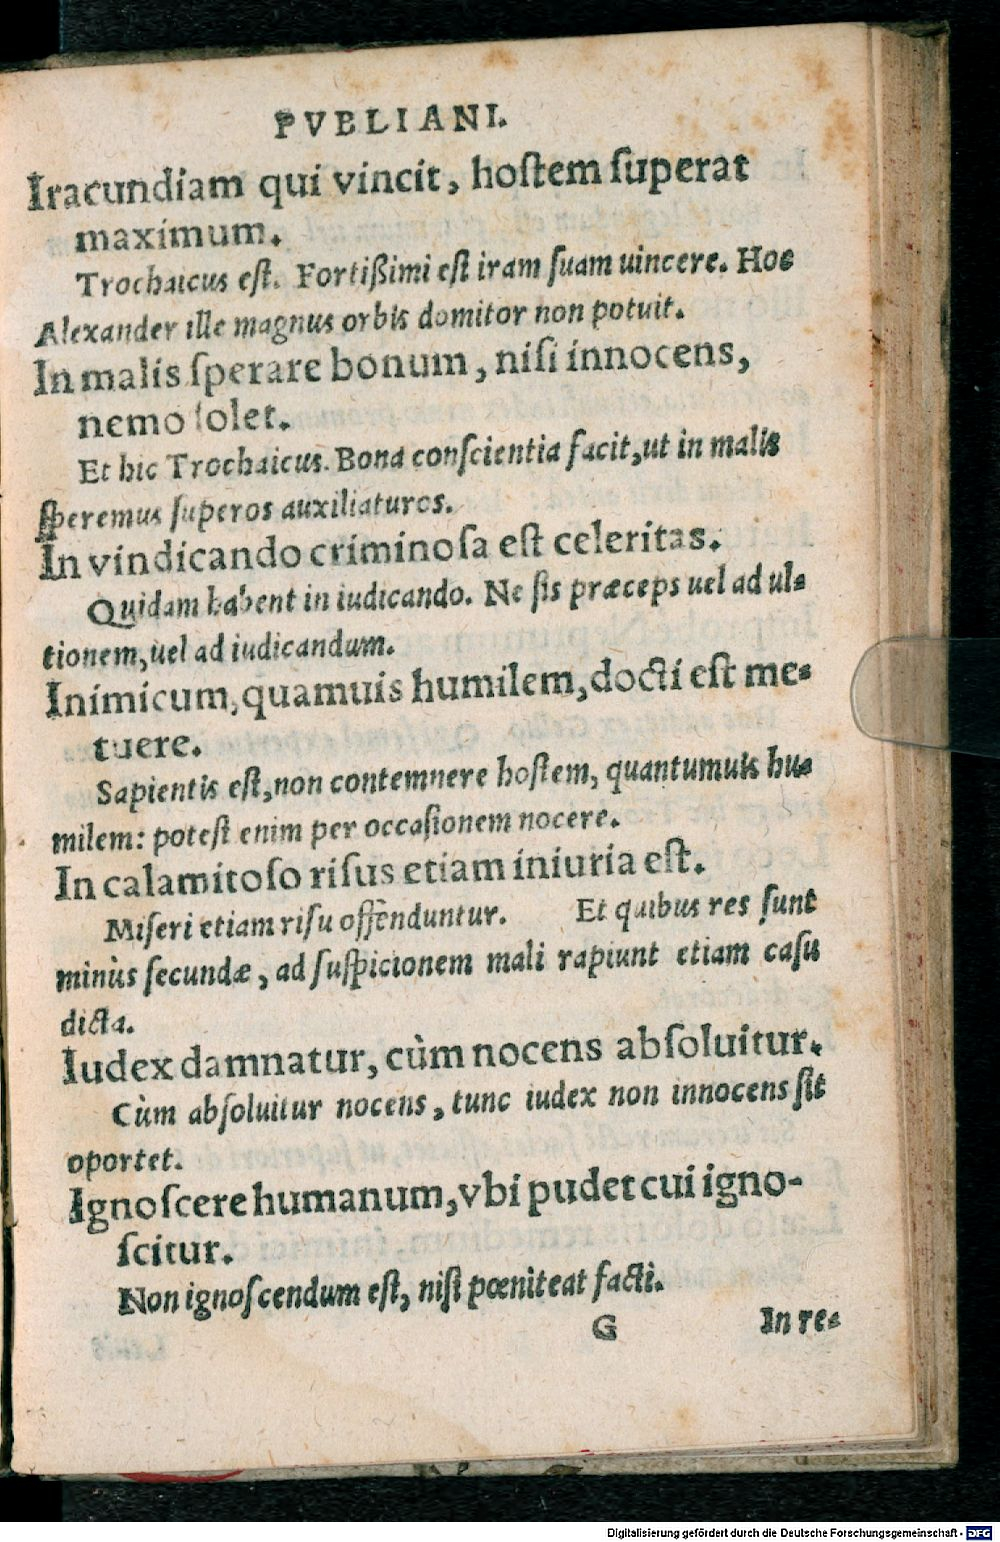 PVBLIANI.
Iracundiam qui vincit, hoſtem ſuperat
maximum.
Trochaicus eſt. Fortißimi eſt iram ſuam uincere. Hoc
Alexander ille magnus orbis domitor non potuit.
In malis ſperare bonum, niſi innocens,
nemo ſolet.
Et hic Trochaicus. Bona conſcientia facit, ut in malis
ſperemus ſuperos auxiliaturos.
In vindicando criminoſa eſt celeritas.
Quidam habent in iudicando. Ne ſis præceps uel ad ul-
tionem, uel ad iudicandum.
Inimicum, quamuis humilem, docti eſt me-
tuere.
Sapientis eſt, non contemnere hoſtem, quantumuis hu-
milem: poteſt enim per occaſionem nocere.
In calamitoſo riſus etiam iniuria eſt.
Miſeri etiam riſu offenduntur. Et quibus res ſunt
minùs ſecundæ, ad ſuſpicionem mali rapiunt etiam caſu
dicta.
Iudex damnatur, cùm nocens abſoluitur.
Cùm abſoluitur nocens, tunc iudex non innocens ſit
oportet.
Ignoſcere humanum, vbi pudet cui igno-
ſcitur.
Non ignoſcendum eſt, niſi pœniteat facti.
G In re-
Digitalisierung gefördert durch die Deutsche Forschungsgemeinschaft - DFG